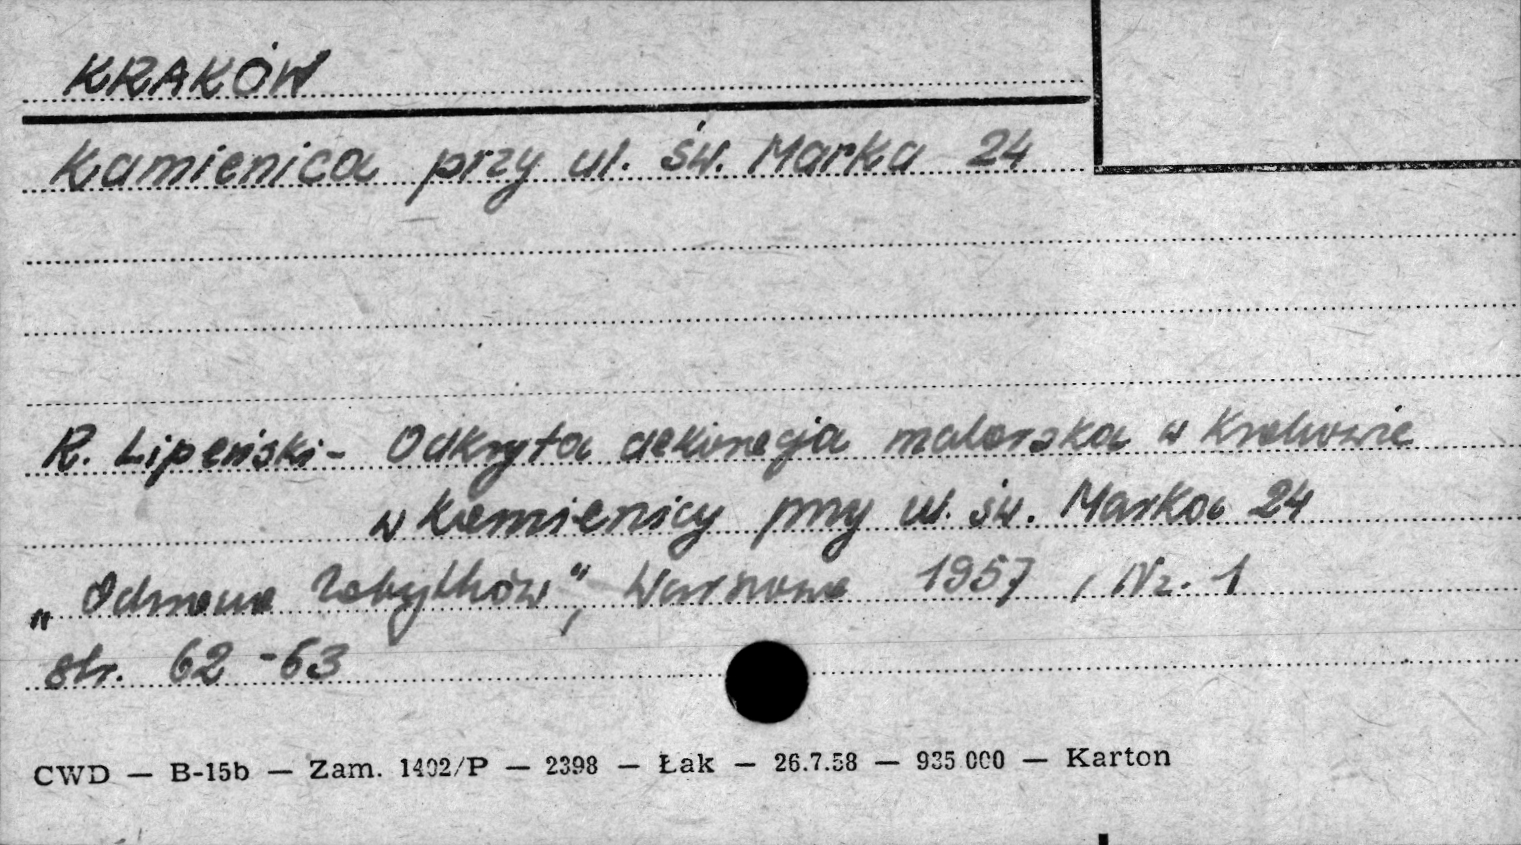 KRAKÓW
Kamienica przy ul. św. Marka 24
R. Lipeński - Odkryta dekoracja malarska w Krakowie
w kamienicy przy ul. św. Marka 24
„Ochrona Zabytków", Warszawa 1957, Nr. 1
str. 62-63
CWD — B-15b — Zam. 1402/P — 2398 — Łak — 26.7.58 — 935 000 — Karton